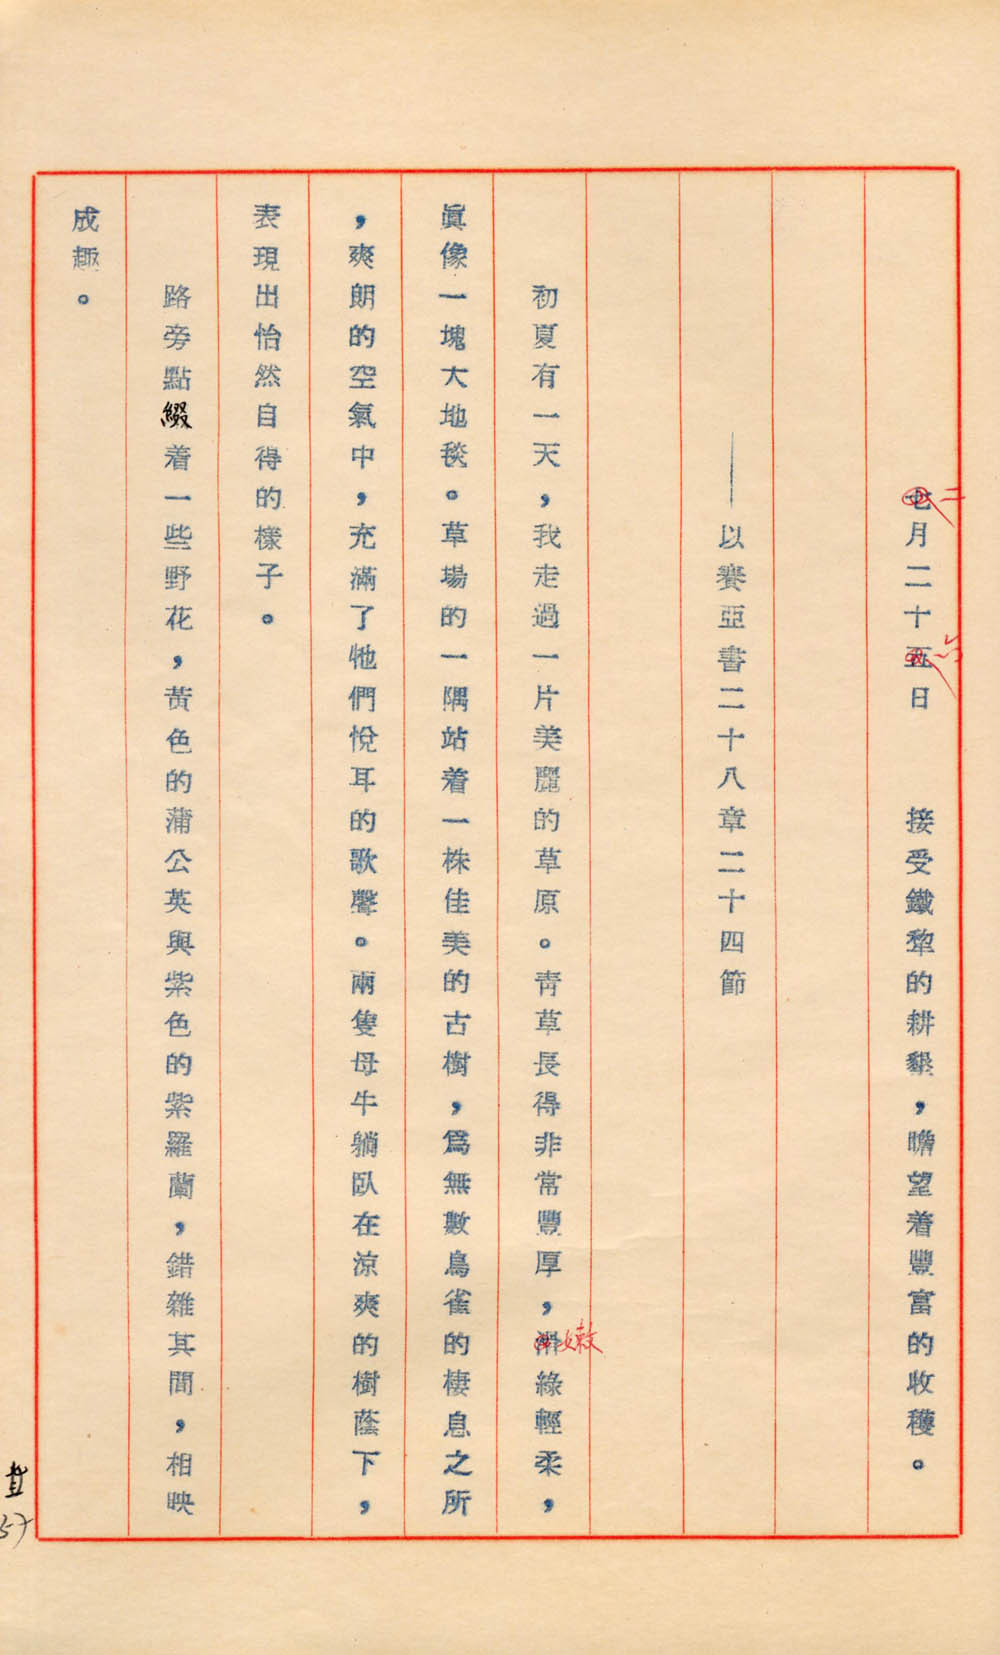 七二月二十五六日　接受鐵犂的耕墾，瞻望着豐富的收穫。
——以賽亞書二十八章二十四節
初夏有一天，我走過一片美麗的草原。青草長得非常豐厚，嫩綠輕柔，
眞像一塊大地毯。草場的一隅站着一株佳美的古樹，爲無數鳥雀的棲息之所
，爽朗的空氣中，充滿了牠們悅耳的歌聲。兩隻母牛躺臥在涼爽的樹蔭下，
表現出怡然自得的樣子。
路旁點綴着一些野花，黃色的蒲公英與紫色的紫羅蘭，錯雜其間，相映
成趣。
57